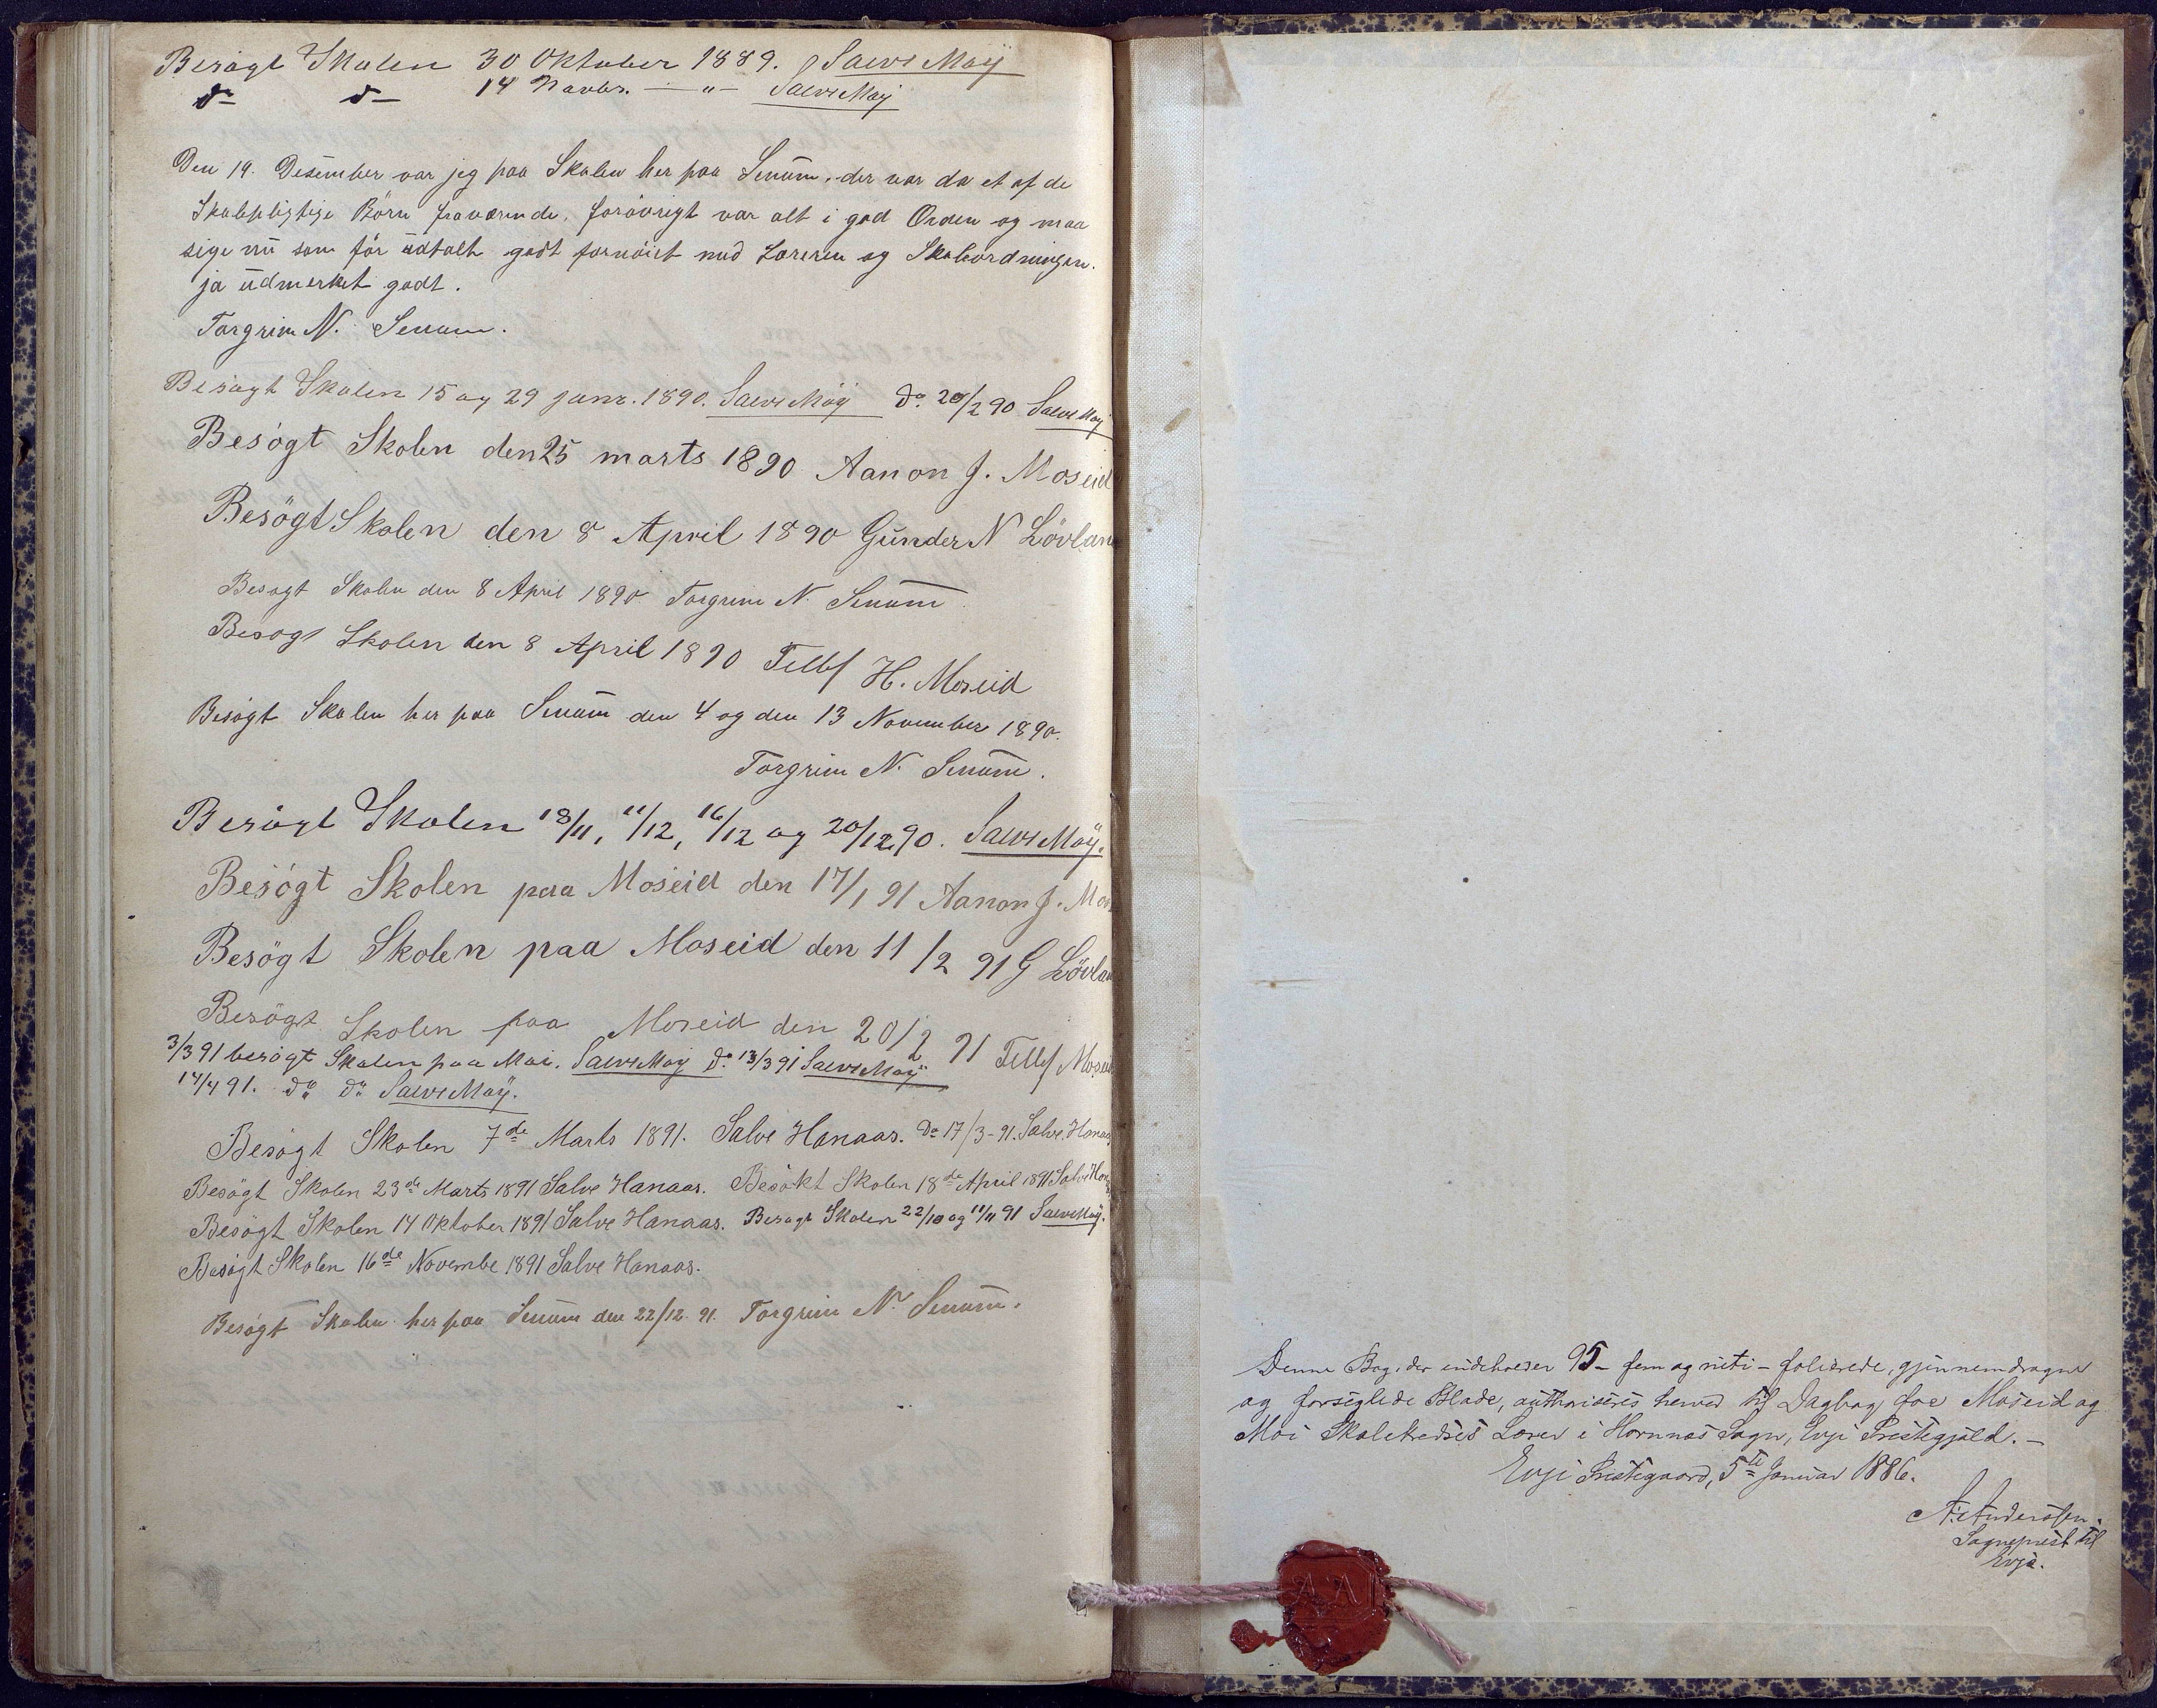 Besögt Skolen 30 Oktober 1889. Salve Moÿ
do do 14 Novbr. — " — Salve Moÿ
Den 19. Desember var jeg paa Skolen her paa Senum. der var da et af de
Skolepligtige Börn fraværende, forövrigt var alt i god Orden og maa
sige nu som för udtalt godt fornöiet med Læreren og Skoleordningen.
ja udmerket godt.
Torgrim N. Senum.
Besögt Skolen 15 og 29 janr. 1890. Salve Moÿ do. 20/2 90 Salve Moÿ
Besögt Skolen den 25 marts 1890 Aanon J. Moseid
Besögt Skolen den 8 April 1890 Gunder N Lövlan
Besögt Skolen den 8 April 1890 Torgrim N. Senum
Besögt Skolen den 8 April 1890 Tellef H. Moseid
Besögt Skolen her paa Senum den 4 og den 13 November 1890.
Torgrim N. Senum.
Besögt Skolen 18/11, 11/12, 16/12 og 20/12 90. Salve Moÿ.
Besögt Skolen paa Moseid den 17/1 91 Aanon J. Mos
Besögt Skolen paa Moseid den 11/2 91 G Lövlan
Besögt Skolen paa Moseid den 20/2 91 Tellef Moseid
3/3 91 besögt Skolen paa Moi. Salve Moÿ do. 13/3 91 Salve Moÿ
14/4 91. do do Salve Moÿ.
Besögt Skolen 7de Marts 1891. Salve Hanaas. Do 17/3-91. Salve Hanaas
Besögt Skolen 23de Marts 1891 Salve Hanaas. Besökt Skolen 18de April 1891 Salve Han
Besögt Skolen 14 Oktober 1891 Salve Hanaas. Besögt Skolen 22/10 og 11/11 91 Salve Moÿ.
Besögt Skolen 16de Novembe 1891 Salve Hanaas.
Besögt Skolen her paa Senum den 22/12. 91. Torgrim N. Senum.
Denne Bog, der indeholder 95 – fem og niti – folierede, gjennemdragne
og forseglede Blade, authoriseres herved til Dagbog for Moseid og
Moi Skolekredses Lærer i Hornnes Sogn, Evje Prestegjæld. –
Evje Prestegaard, 5te Januar 1886.
A. Anderssen.
Sogneprest til
Evje.
A A